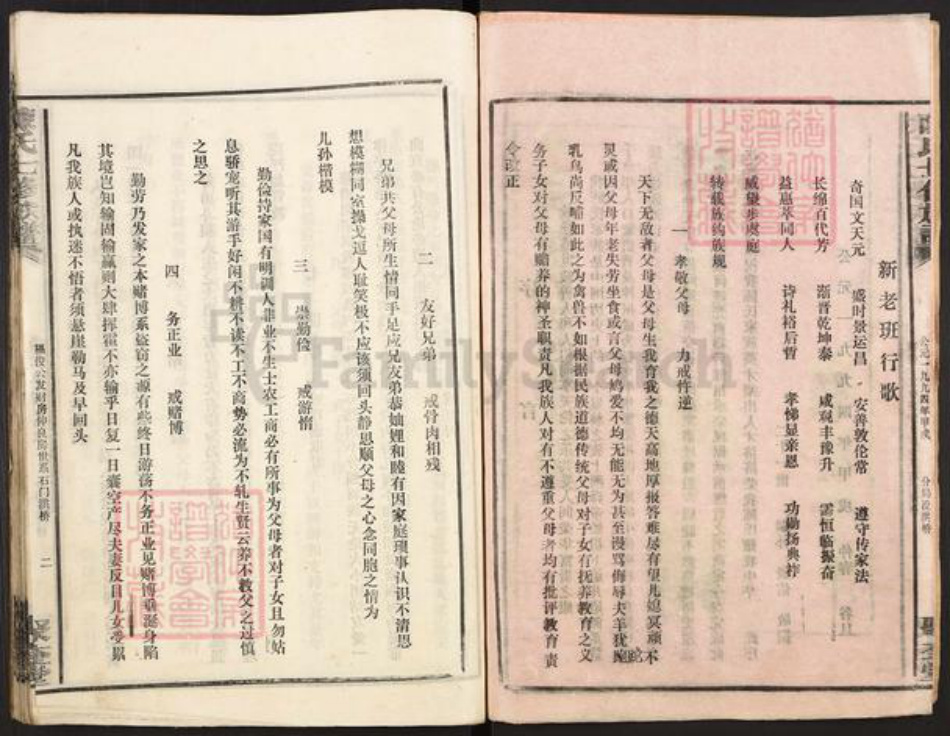 新老班行歌
奇国文天元 盛时景运昌 安善敦伦常 遵守传家法
长绵百代芳 渐晋乾坤泰 咸观丰豫升 需恒临振奋
益嘉萃同人 诗礼裕后昔 孝悌显亲恩 功勋扬典祚
威望步虞庭
转载族钩族规
一 孝敬父母 力戒忤逆
天下无敌者父母是父母生我育我之德天高地厚报答难尽有望儿媳冥顽不
灵或因父母年老失劳坐食或言父母鸠爱不均无能无为甚至漫骂侮辱夫羊犹跪
乳乌尚反哺如此之为禽兽不如根据民族道德传统父母对子女有抚养教育之义
务子女对父母有赡养的神圣职责凡我族人对有不遵重父母者均有批评教育责
令改正
公元一九九四年甲戌 分局设洪桥
二 友好兄弟 戒骨肉相残
兄弟共父母所生情同手足应兄友弟恭妯娌和睦有因家庭琐事认识不清思
想模糊同室操戈逗人耻笑极不应该须回头静思顺父母之心念同胞之情为
儿孙楷模
三 崇勤俭 戒游惰
勤俭持家国有明训人非业不生士农工商必有所事为父母者对子女且勿姑
息骄宠听其游手好闲不耕不读不工不商势必流为不轧生贤云养不教父之过慎
之思之
四 务正业 戒赌博
勤劳乃发家之本赌博系盗窃之源有些终日游荡不务正业见赌博垂涎身陷
其境岂知输固输赢则大肆挥霍不亦输乎日复一日囊空产尽夫妻反目儿女受累
凡我族人或执迷不悟者须悬崖勒马及早回头
福俊公发财房仲良房世系石门洪桥 二
FamilySearch